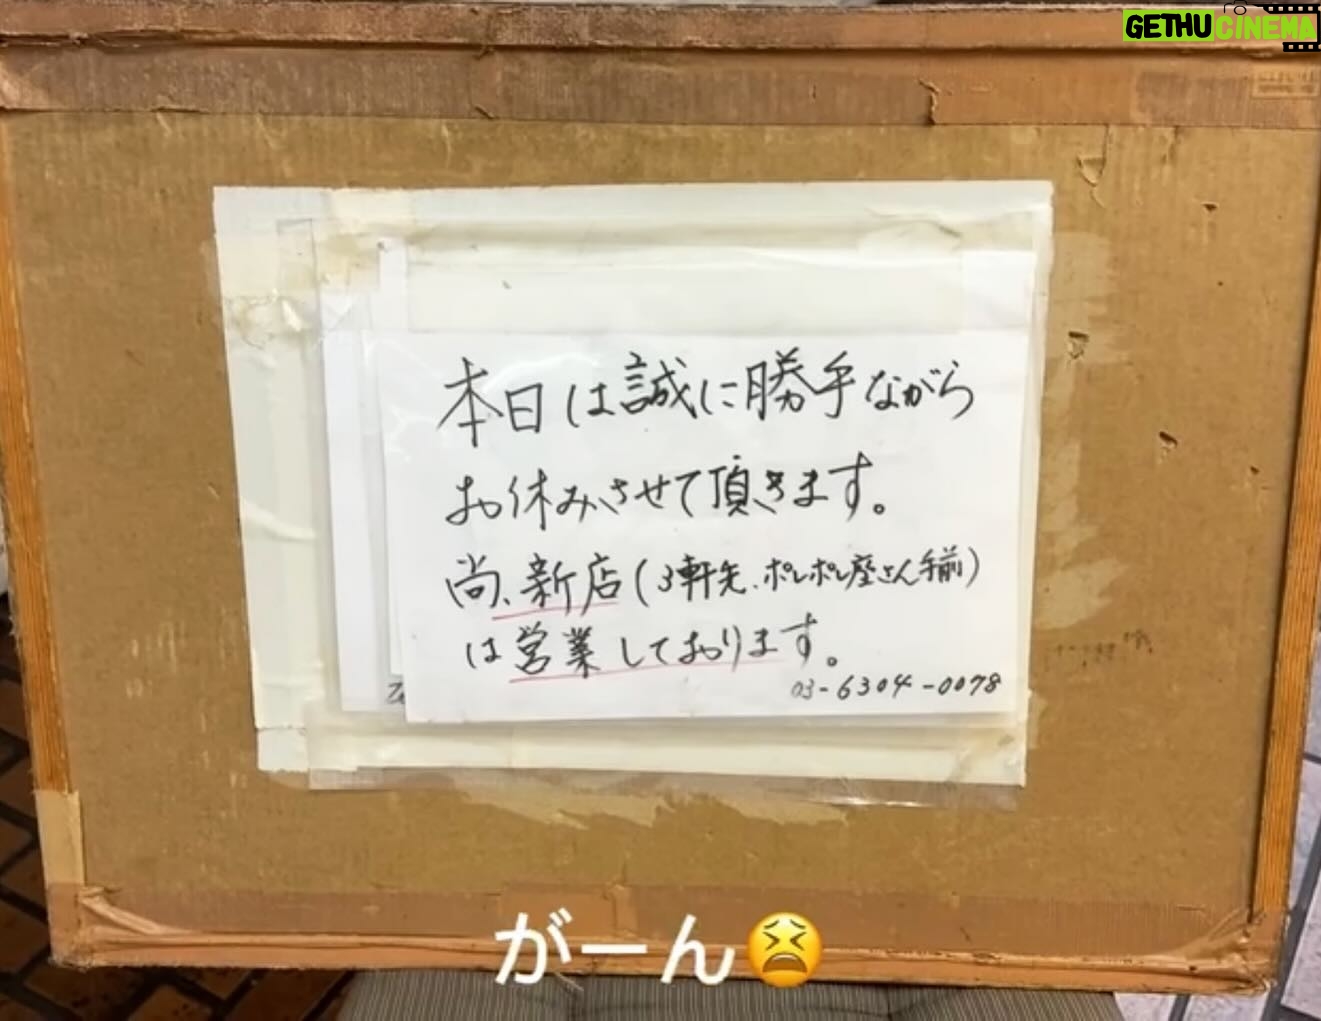 GETHU CINEMA
本日は誠に勝手ながら
お休みさせて頂きます。
尚、新店(3軒先、ポレポレ座さん手前)
は営業しております。
03-6304-0078
がーん😫